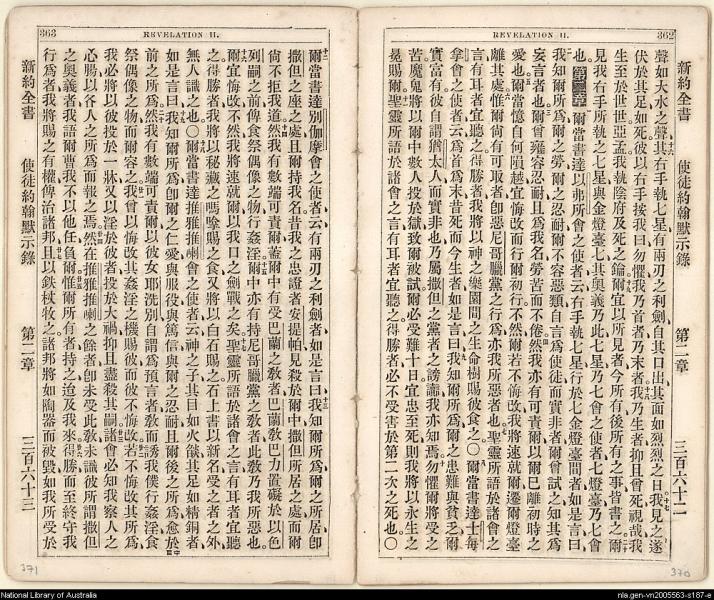 REVELATION II. 362
新約全書 使徒約翰默示錄 第二章 三百六十二
聲如大水之聲其右手執七星有兩刃之利劍自其口出其面如烈烈之日我見之遂
伏於其足如死彼以右手按我曰勿懼我乃首者乃末者我乃生者抑且曾死視哉我
生至於世世亞孟我執陰府及死之鑰爾宜以所見者今所有後所有之事皆書之
見我右手所執之七星與金燈臺七其奧義乃此七星乃七會之使者七燈臺乃七會
也第二章爾當書達以弗所會之使者云右手執七星行於七金燈臺間者如是言曰
我知爾所爲爾之勞爾之忍耐爾不容惡類自言爲使徒而實非者爾曾試之知其爲
妄言者也爾曾雍容忍耐且爲我名勞苦而不倦然我亦有可責爾以爾已離初時之
愛也爾當憶自何隕越宜悔改而行爾初行不然爾若不悔改我將速就爾遷爾燈臺
離其處惟爾尚有可取者卽惡尼哥臘黨之行爲亦我所惡者也聖靈所語於諸會之
言有耳者宜聽之得勝者我將以神之樂園間之生命樹賜彼食之〇爾當書達士每
拿會之使者云爲首爲末昔死而今生者如是言曰我知爾所爲爾之患難與貧乏爾
實富有彼自謂猶太人而實非也乃屬撒但之黨者之謗讟我亦知焉勿懼爾將受之
苦魔鬼將以爾中數人投於獄致爾被試爾必受難十日宜忠至死則我將以永生之
冕賜爾聖靈所語於諸會之言有耳者宜聽之得勝者必不受害於第二次之死也〇
370
363 REVELATION II.
爾當書達別伽摩會之使者云有兩刃之利劍者如是言曰我知爾所爲爾之所居卽
撒但之座之處且爾持我名昔我之忠證者安提帕見殺於爾中撒但所居之處而爾
尚不拒我道然我有數端可責爾蓋爾中有受巴蘭之教者巴蘭教巴力置礙於以色
列嗣之前俾食祭偶像之物行姦淫爾中亦有持尼哥臘黨之教者此教乃我所惡也
爾宜悔改不然我將速就爾以我口之劍戰之矣聖靈所語於諸會之言有耳者宜聽
之得勝者我將以秘藏之嗎嗱賜之食又將以白石賜之石上書以新名受之者之外
無人識之也〇爾當書達推雅推喇會之使者云神之子其目如火燄其足如精銅者
如是言曰我知爾所爲卽爾之仁愛與服役與篤信與爾之忍耐且爾後之所爲愈於
前之所爲然我有數端可責爾以彼女耶洗別自謂爲預言者教而誘我僕行姦淫食
祭偶像之物而爾容之我曾以悔改其姦淫之機賜彼而彼不悔改若不悔改其所爲
我必將以彼投於一牀又以淫於彼者投於大禍抑且盡殺其嗣諸會必知我察人之
心腸以各人之所爲而報之焉然在推雅推喇之餘者卽未受此教未識彼所謂撒但
之奧義者我語爾曹我不以他任負爾惟爾所有者持之迨及我來得勝而至終守我
行爲者我將賜之有權俾治諸邦且以鉄杖牧之諸邦將如陶器而被毀如我所受於
新約全書 使徒約翰默示錄 第二章 三百六十三
371
National Library of Australia
nla.gen-vn2005563-s187-e